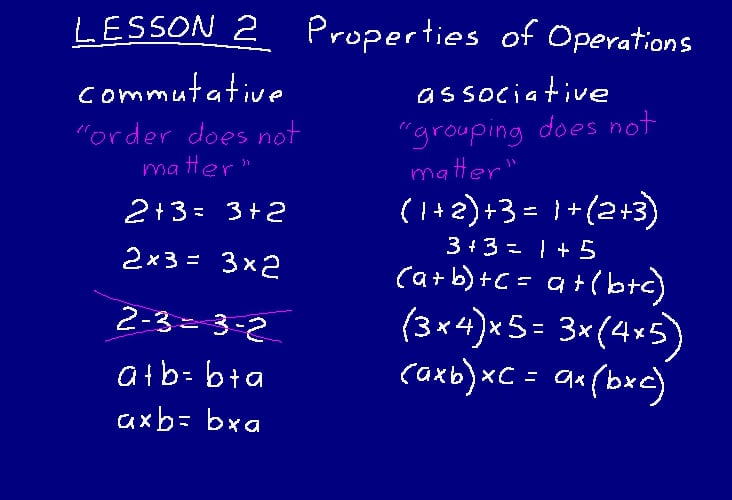 LESSON 2 Properties of Operations
commutative
"order does not
matter"
2+3= 3+2
2×3= 3×2
2-3=3-2
a+b=b+a
a×b= b×a
associative
"grouping does not
matter"
(1+2)+3= 1+(2+3)
3+3= 1+5
(a+b)+c= a+(b+c)
(3×4)×5= 3×(4×5)
(a×b)×c = a×(b×c)